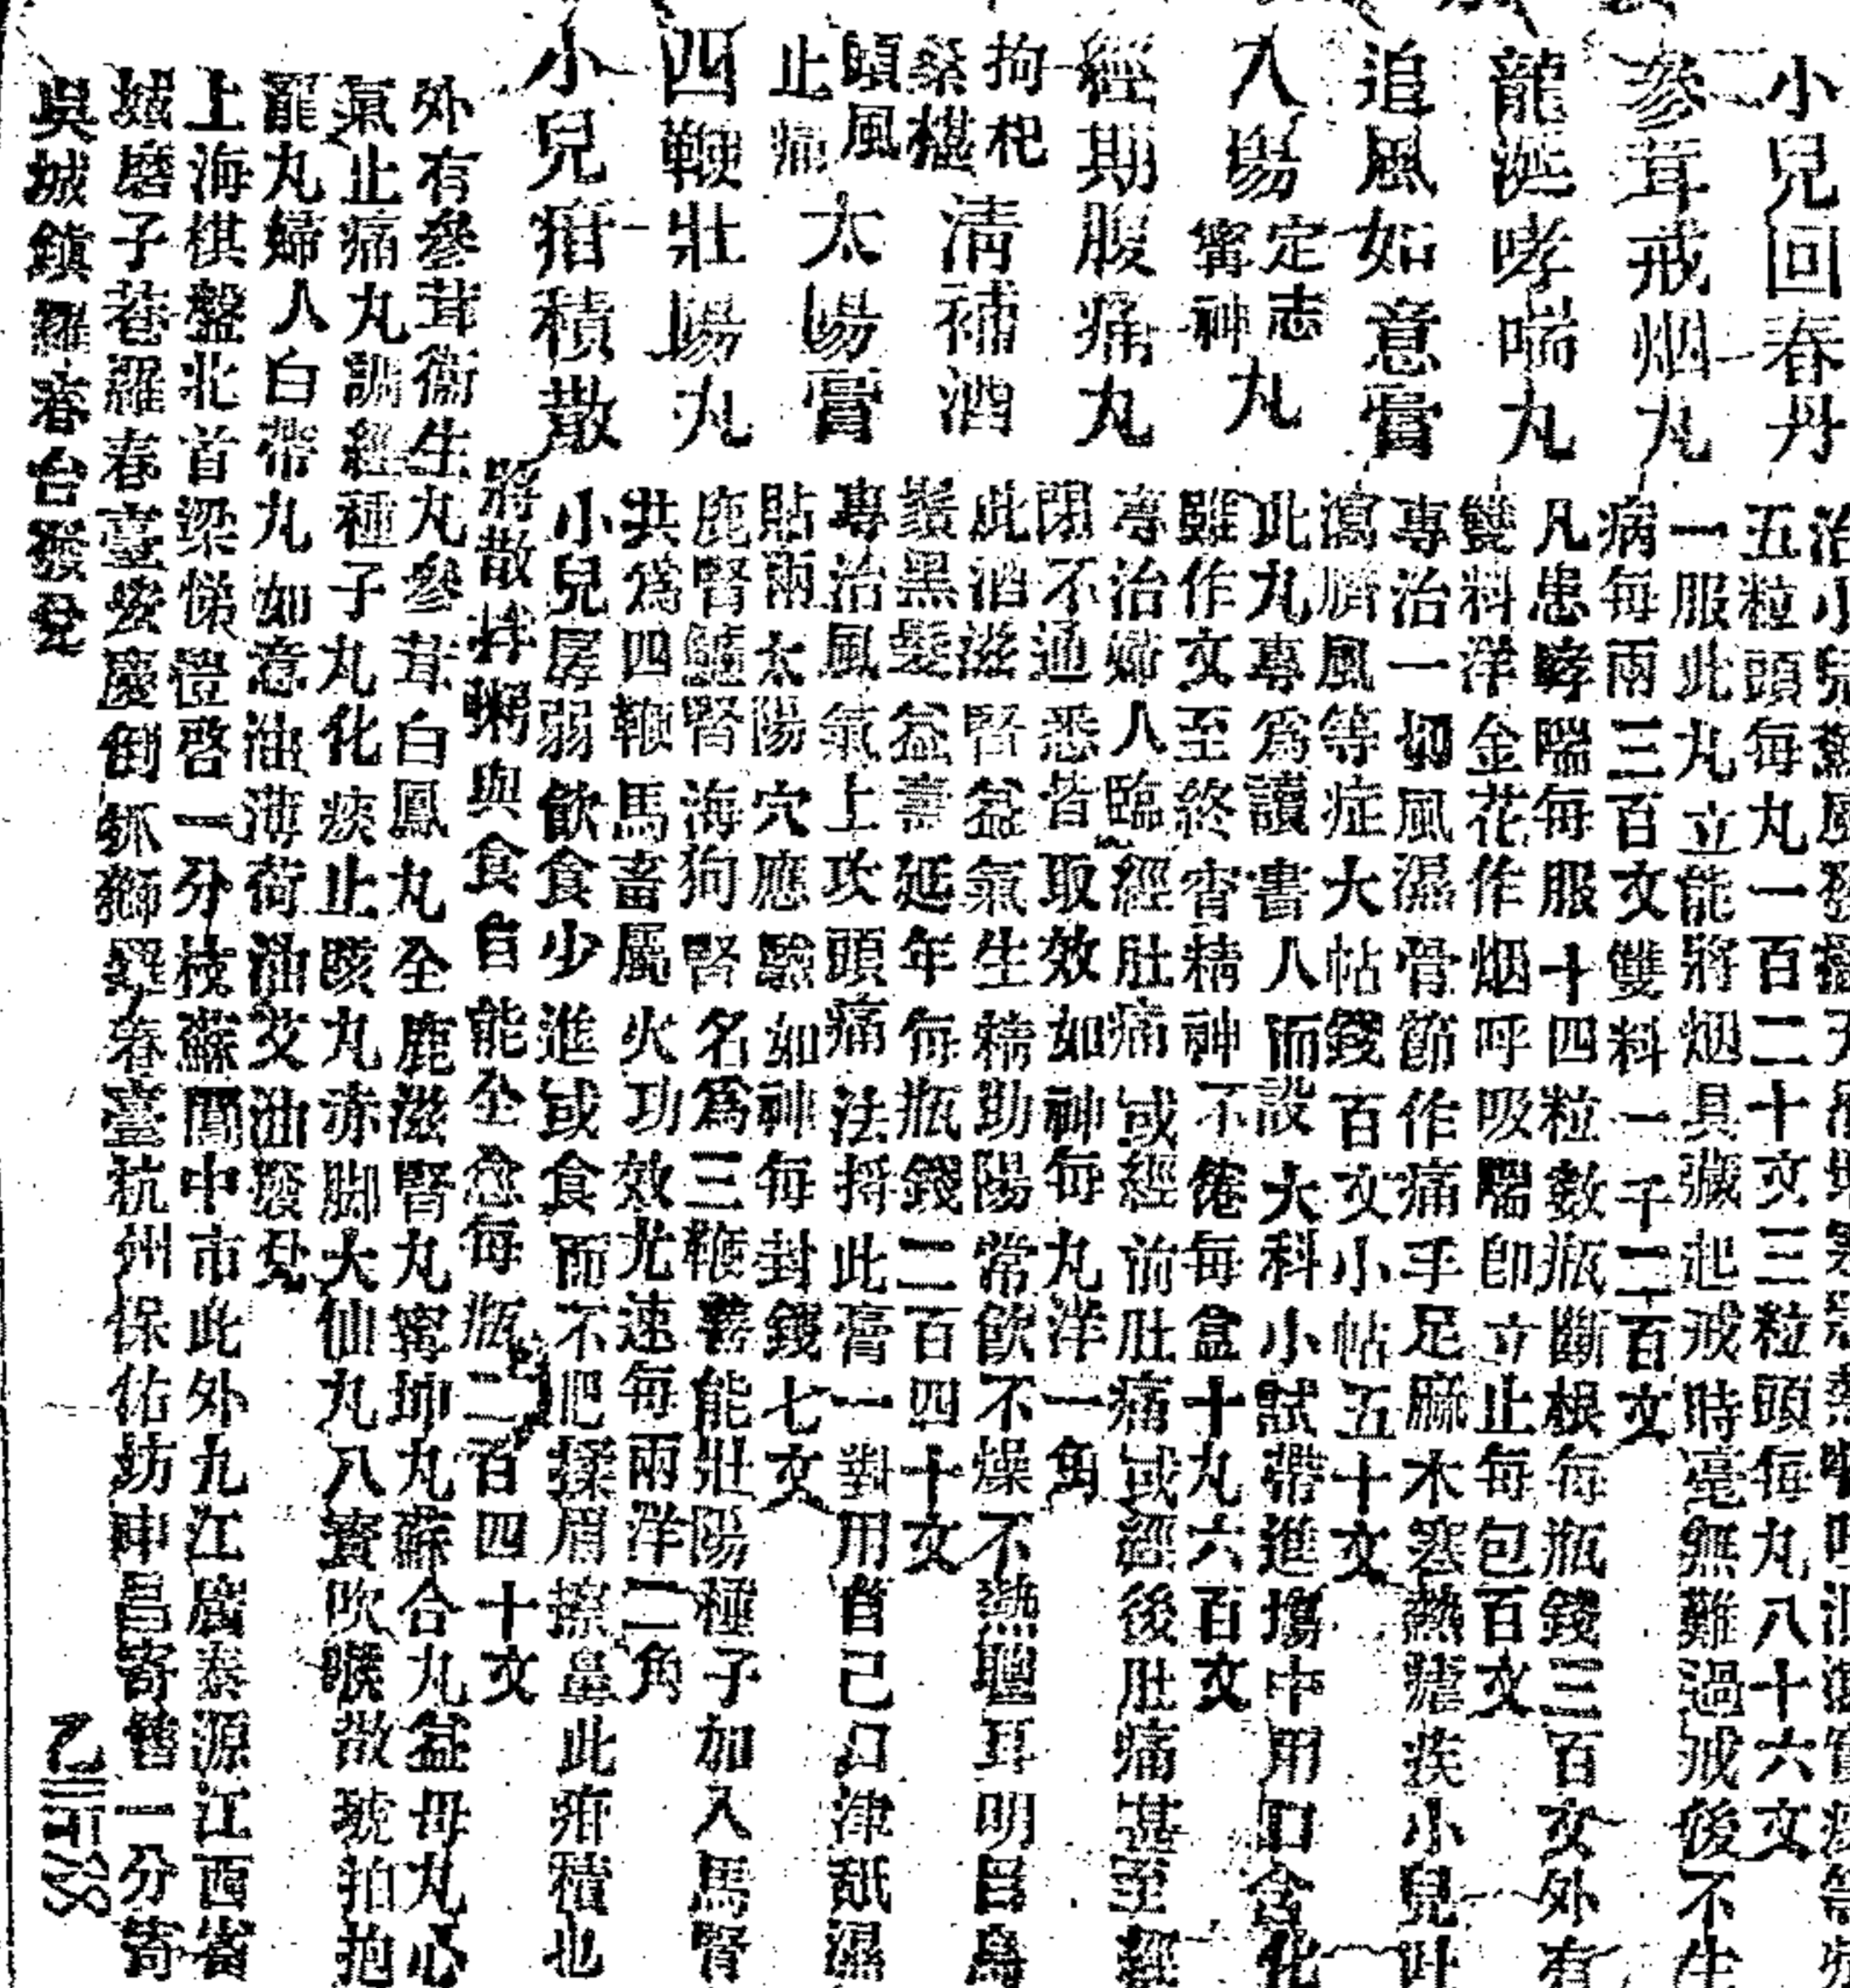 小兒回春丹
五粒頭每丸一百二十文三粒頭每丸八十六文
參茸戒烟丸
一服此丸立能將烟具藏起戒時毫無難過戒後不生
病每兩三百文雙料一千二百文
龍涎哮喘丸
凡患哮喘每服十四粒數瓶斷根每瓶錢三百文外有
雙料洋金花作烟呼吸喘卽立止每包百文
追風如意膏
專治一切風濕骨節作痛手足麻木寒熱瘧疾小兒吐
瀉臍風等症大帖錢百文小帖五十文
入場定志寗神丸
此丸專爲讀書人而設大科小試帶進塲中用口含化
雖作文至終宵精神不倦每盒十九六百文
經期腹痛丸
專治婦人臨經肚痛或經前肚痛或經後肚痛甚至經
閉不通悉皆取效如神每丸洋一角
拘杞桑椹清補酒
此酒滋腎益氣生精助陽常飮不燥不熱聰耳明目烏
鬚黑髮益壽延年每瓶錢二百四十文
頭風止痛太陽膏
專治風氣上攻頭痛法將此膏一對用自己口津舐濕
貼兩太陽穴應驗如神每封錢七文
四鞭壯陽丸
鹿腎驢腎海狗腎名爲三鞭善能壯陽種子加入馬腎
共爲四鞭馬畜屬火功效尤速每兩洋二角
小兒疳積散
小兒孱弱飮食少進或食而不肥揉眉擦鼻此疳積也
將散拌粥與食自能全愈每瓶二百四十文
外有參茸衞生丸參茸白鳳丸全鹿滋腎丸寗坤丸蘇合丸益母丸心
氣止痛丸調經種子丸化痰止咳丸赤脚大仙丸八寶吹喉散琥珀抱
龍丸婦人白帶丸如意油薄荷油艾油發兌
上海棋盤北首梁悌豐啓一分棧蘇閶中市此外九江廣泰源江西省
城磨子巷羅春臺安慶倒趴獅羅春臺杭州保佑坊申昌寄售一分寄
吳城鎭羅春台發兌